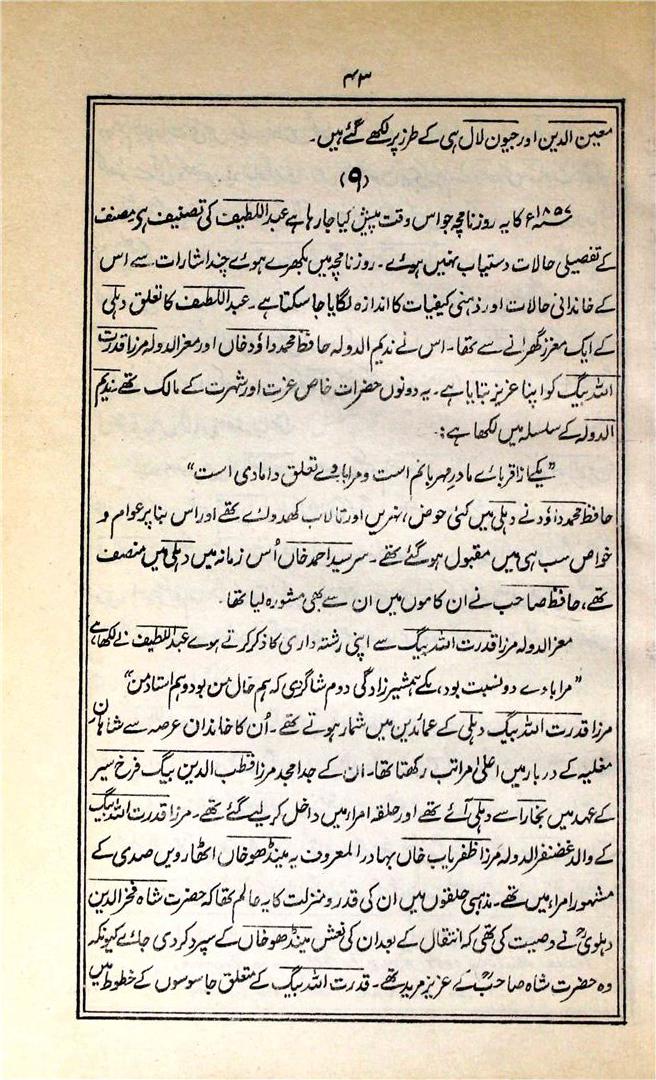 ۴۳
معین الدین اور جیون لال ہی کے طرز پر لکھے گئے ہیں۔
(۹)
۱۸۵۷ء کا یہ روزنامچہ جو اس وقت پیش کیا جا رہا ہے عبداللطیف کی تصنیف ہی مصنف
کے تفصیلی حالات دستیاب نہیں ہوئے۔ روزنامچہ میں بکھرے ہوئے چند اشارات سے اس
کے خاندانی حالات اور ذہنی کیفیات کا اندازہ لگایا جا سکتا ہے۔ عبداللطیف کا تعلق دہلی
کے ایک معزز گھرانے سے تھا۔ اس نے ندیم الدولہ حافظ محمد داؤد خاں اور معزالدولہ مرزا قدرت
اللہ بیگ کو اپنا عزیز بتایا ہے۔ یہ دونوں حضرات خاص عزت اور شہرت کے مالک تھے ندیم
الدولہ کے سلسلہ میں لکھا ہے:۔
”یکے از اقربائے مادر مہربانم است و مرا با وے تعلق دامادی است“
حافظ محمد داؤد نے دہلی میں کئی حوض، نہریں اور تالاب کھدوائے تھے اور اس بنا پر عوام و
خواص سب ہی میں مقبول ہو گئے تھے۔ سر سید احمد خاں اُس زمانہ میں دہلی میں منصف
تھے، حافظ صاحب نے ان کاموں میں ان سے بھی مشورہ لیا تھا۔
معزالدولہ مرزا قدرت اللہ بیگ سے اپنی رشتہ داری کا ذکر کرتے ہوے عبداللطیف نے لکھا ہے
”مرا با وے دو نسبت بود، یکے ہمشیر زادگی دوم شاگردی کہ ہم خال من بود و ہم استاد من“
مرزا قدرت اللہ بیگ دہلی کے عمائدین میں شمار ہوتے تھے۔ اُن کا خاندان عرصہ سے شاہان
مغلیہ کے دربار میں اعلیٰ مراتب رکھتا تھا۔ ان کے جد امجد مرزا قطب الدین بیگ فرخ سیر
کے عہد میں بخارا سے دہلی آئے تھے اور حلقہ امراء میں داخل کر لیے گئے تھے۔ مرزا قدرت اللہ بیگ
کے والد غضنفر الدولہ مرزا ظفر یاب خاں بہادر المعروف بہ مینڈھو خاں اٹھارویں صدی کے
مشہور امراء میں تھے۔ مذہبی حلقوں میں ان کی قدر و منزلت کا یہ عالم تھا کہ حضرت شاہ فخر الدین
دہلویؒ نے وصیت کی تھی کہ انتقال کے بعد ان کی نعش مینڈھو خاں کے سپرد کر دی جائے کیونکہ
وہ حضرت شاہ صاحبؒ کے عزیز مرید تھے۔ قدرت اللہ بیگ کے متعلق جاسوسوں کے خطوط میں